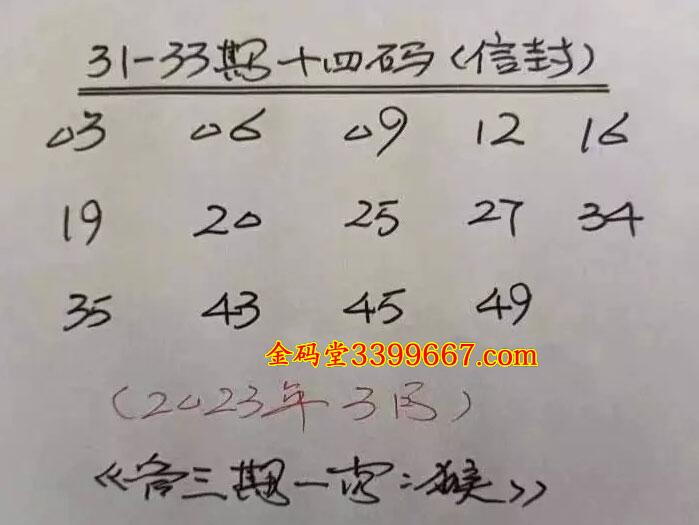 31-33期十四码(信封)
03 06 09 12 16
19 20 25 27 34
35 43 45 49
金码堂3399667.com
(2023年3月)
《三期一肖:猴》